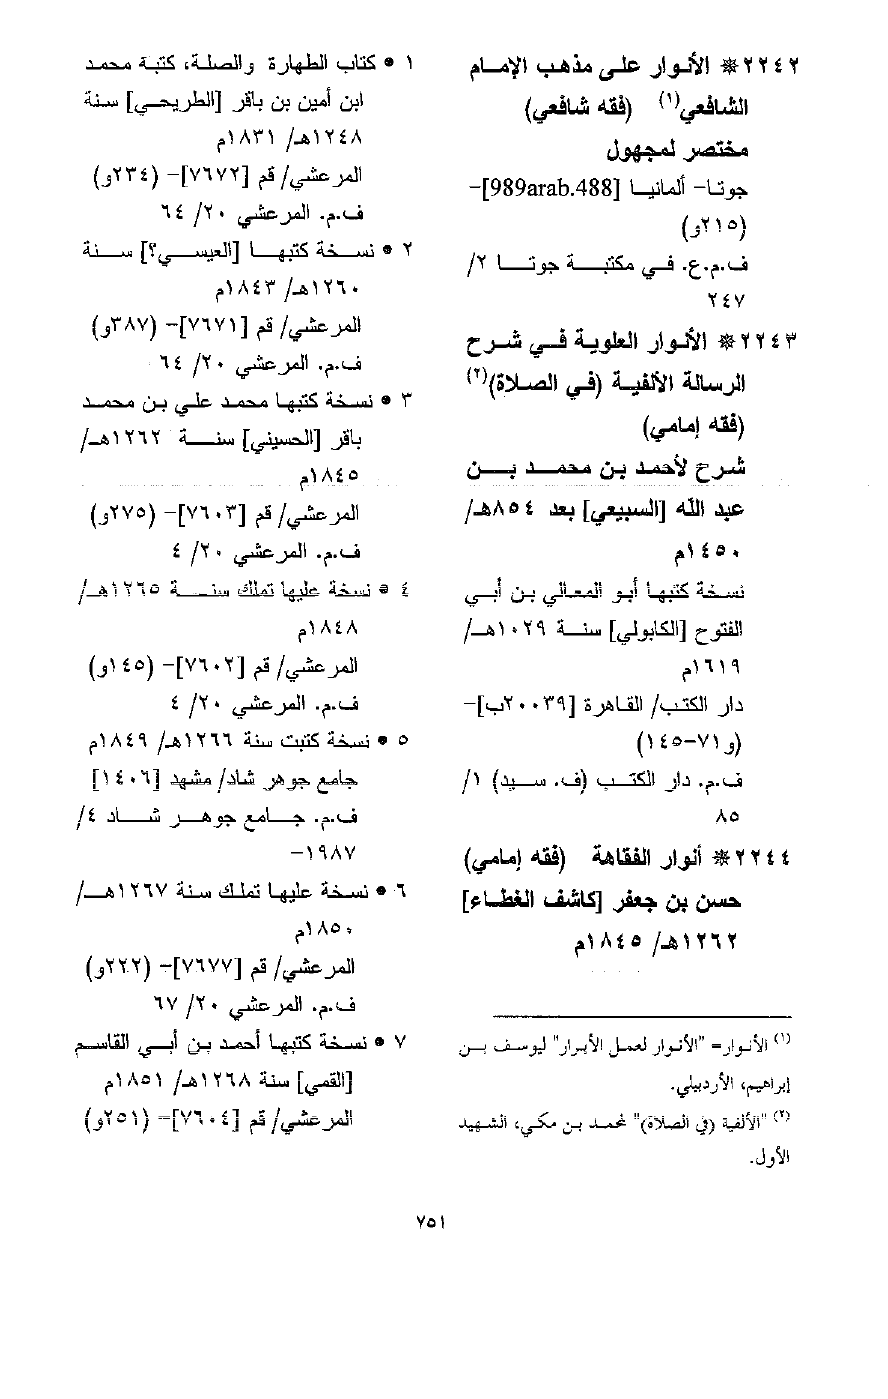 ٢٢٤٢ ❋ الأنوار على مذهب الإمام
الشافعي(١) (فقه شافعي)
مختصر لمجهول
جوتا- ألمانيا [989arab.488]-
(٢١٥و)
ف.م.ع. في مكتبة جوتا ٢/
٢٤٧
٢٢٤٣ ❋ الأنوار العلوية في شرح
الرسالة الألفية (في الصلاة)(٢)
(فقه إمامي)
شرح لأحمد بن محمد بن
عبد الله [السبيعي] بعد ٨٥٤هـ/
١٤٥٠م
نسخة كتبها أبو المعالي بن أبي
الفتوح [الكابولي] سنة ١٠٢٩هـ/
١٦١٩م
دار الكتب/ القاهرة [٢٠٠٣٩ب]-
(و٧١-١٤٥)
ف.م. دار الكتب (ف. سيد) ١/
٨٥
٢٢٤٤ ❋ أنوار الفقاهة (فقه إمامي)
حسن بن جعفر [كاشف الغطاء]
١٢٦٢هـ/ ١٨٤٥م
(١) الأنوار= "الأنوار لعمل الأبرار" ليوسف بن
إبراهيم، الأردبيلي.
(٢) "الألفية (في الصلاة)" لمحمد بن مكي، الشهيد
الأول.
١ • كتاب الطهارة والصلة، كتبة محمد
ابن أمين بن باقر [الطريحي] سنة
١٢٤٨هـ/ ١٨٣١م
المرعشي/ قم [٧٦٧٢]- (٢٣٤و)
ف.م. المرعشي ٢٠/ ٦٤
٢ • نسخة كتبها [العيسي؟] سنة
١٢٦٠هـ/ ١٨٤٣م
المرعشي/ قم [٧٦٧١]- (٣٨٧و)
ف.م. المرعشي ٢٠/ ٦٤
٣ • نسخة كتبها محمد علي بن محمد
باقر [الحسيني] سنة ١٢٦٢هـ/
١٨٤٥م
المرعشي/ قم [٧٦٠٣]- (٢٧٥و)
ف.م. المرعشي ٢٠/ ٤
٤ • نسخة عليها تملك سنة ١٢٦٥هـ/
١٨٤٨م
المرعشي/ قم [٧٦٠٢]- (١٤٥و)
ف.م. المرعشي ٢٠/ ٤
٥ • نسخة كتبت سنة ١٢٦٦هـ/ ١٨٤٩م
جامع جوهر شاد/ مشهد [١٤٠٦]
ف.م. جامع جوهر شاد ٤/
١٩٨٧-
٦ • نسخة عليها تملك سنة ١٢٦٧هـ/
١٨٥٠م
المرعشي/ قم [٧٦٧٧]- (٢٢٢و)
ف.م. المرعشي ٢٠/ ٦٧
٧ • نسخة كتبها أحمد بن أبي القاسم
[القمي] سنة ١٢٦٨هـ/ ١٨٥١م
المرعشي/ قم [٧٦٠٤]- (٢٥١و)
٧٥١